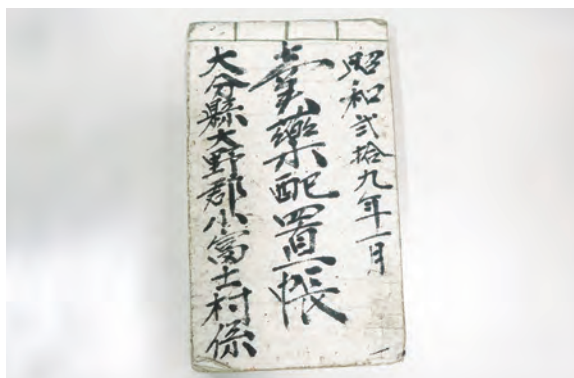 昭和弐拾九年一月
賣藥配置帳
大分縣大野郡小富士村係